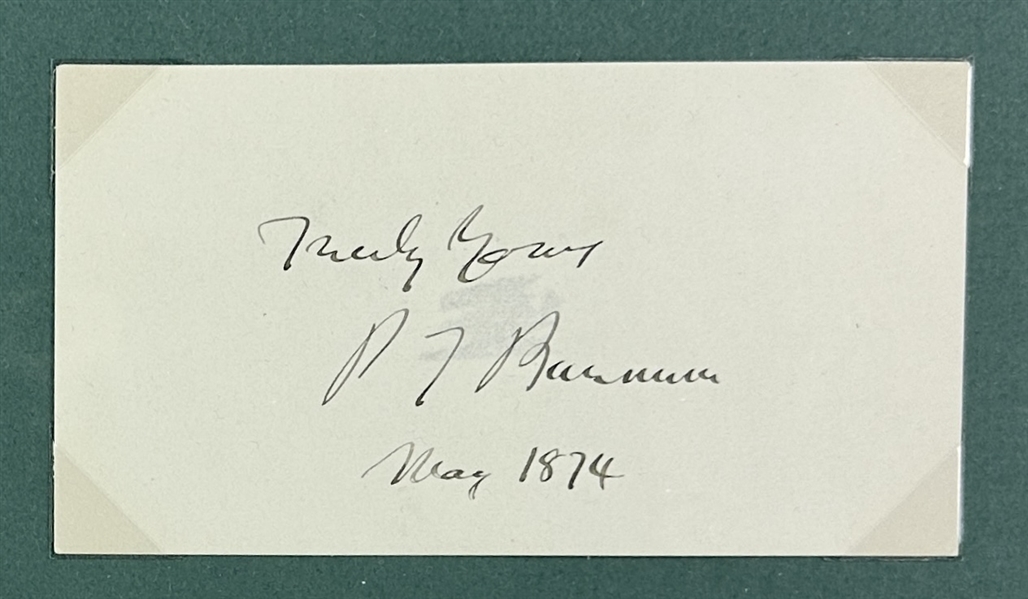 Truly Yours
P T Barnum
May 1874